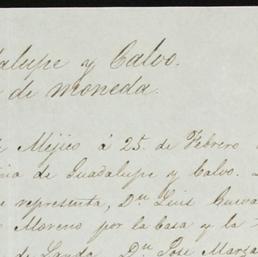 alupe y Calvo.
de moneda.
Méjico á 25. de Febrero
de Guadalupe y Calvo.
representa, Dn Luis
Moreno por la Casa y la
de Landa. Dn José